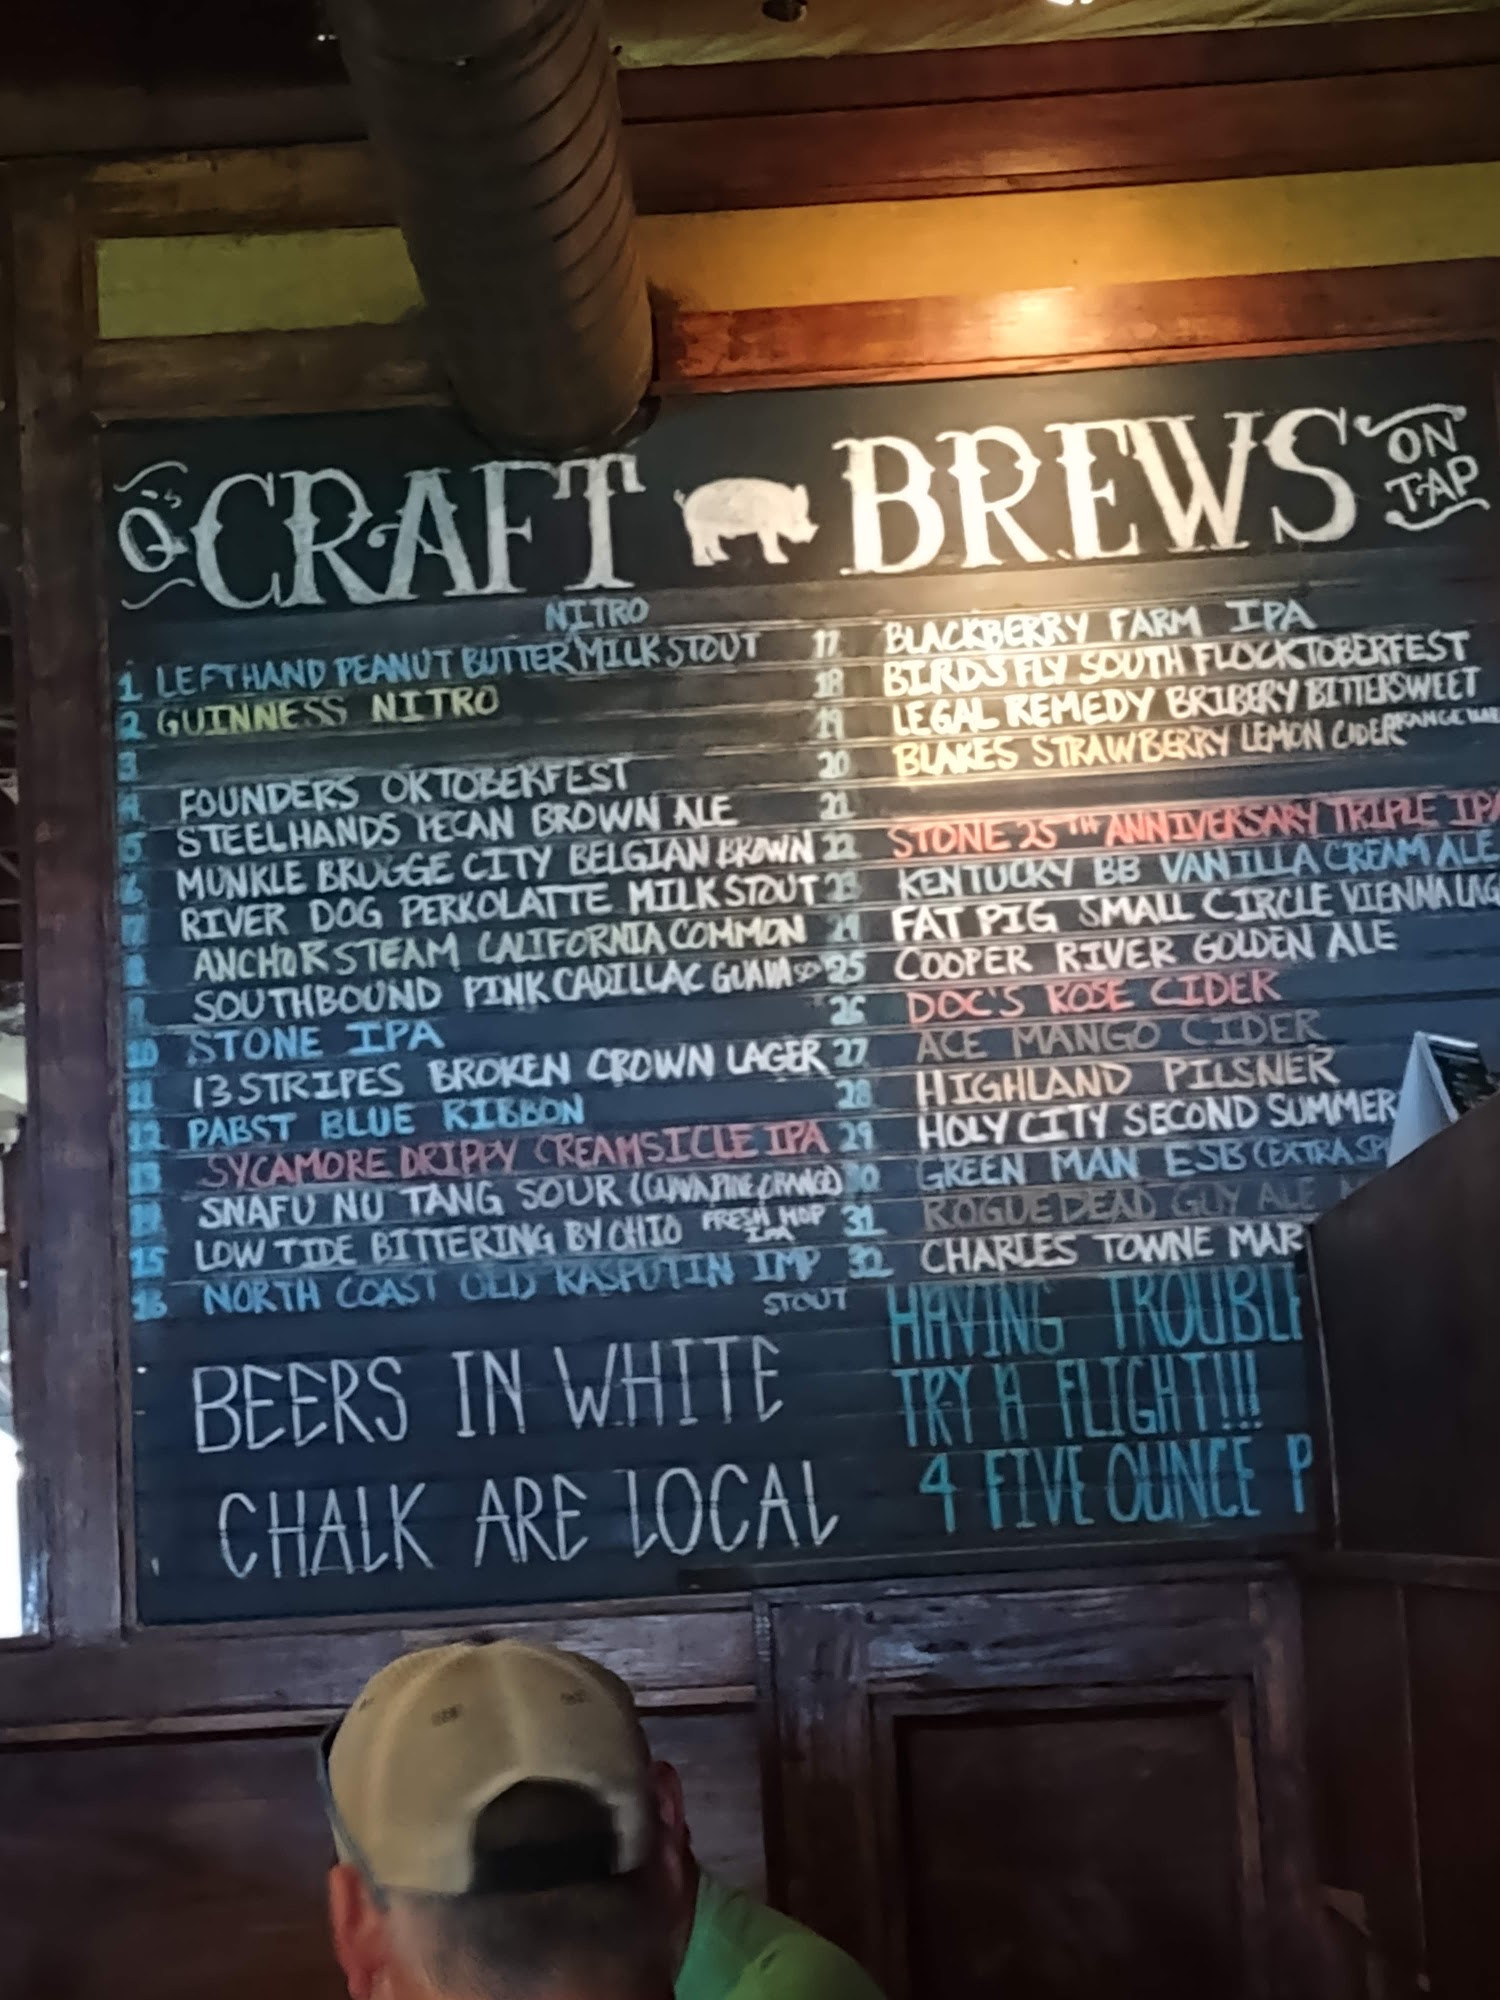 Q's CRAFT BREWS ON TAP
NITRO
1 LEFTHAND PEANUT BUTTER MILK STOUT
2 GUINNESS NITRO
3
4 FOUNDERS OKTOBERFEST
5 STEELHANDS PECAN BROWN ALE
6 MUNKLE BRUGGE CITY BELGIAN BROWN
7 RIVER DOG PERKOLATTE MILK STOUT
8 ANCHOR STEAM CALIFORNIA COMMON
9 SOUTHBOUND PINK CADILLAC GUAVA
10 STONE IPA
11 13 STRIPES BROKEN CROWN LAGER
12 PABST BLUE RIBBON
13 SYCAMORE DRIPPY CREAMSICLE IPA
14 SNAFU NU TANG SOUR (GUAVA, PINE, ORANGE)
15 LOW TIDE BITTERING BY OHIO FRESH HOP IPA
16 NORTH COAST OLD RASPUTIN IMP
STOUT
17 BLACKBERRY FARM IPA
18 BIRDSFLY SOUTH FLOCKTOBERFEST
19 LEGAL REMEDY BRIBERY BITTERSWEET
ORANGE
20 BLAKES STRAWBERRY LEMON CIDER
21
22 STONE 25TH ANNIVERSARY TRIPLE IPA
23 KENTUCKY BB VANILLA CREAM ALE
24 FAT PIG SMALL CIRCLE VIENNA LAG
25 COOPER RIVER GOLDEN ALE
26 DOC'S ROSE CIDER
27 ACE MANGO CIDER
28 HIGHLAND PILSNER
29 HOLY CITY SECOND SUMMER
30 GREEN MAN ESB (EXTRA SP
31 ROGUE DEAD GUY ALE
32 CHARLES TOWNE MAR
BEERS IN WHITE
CHALK ARE LOCAL
HAVING TROUBL
TRY A FLIGHT!!!
4 FIVE OUNCE P